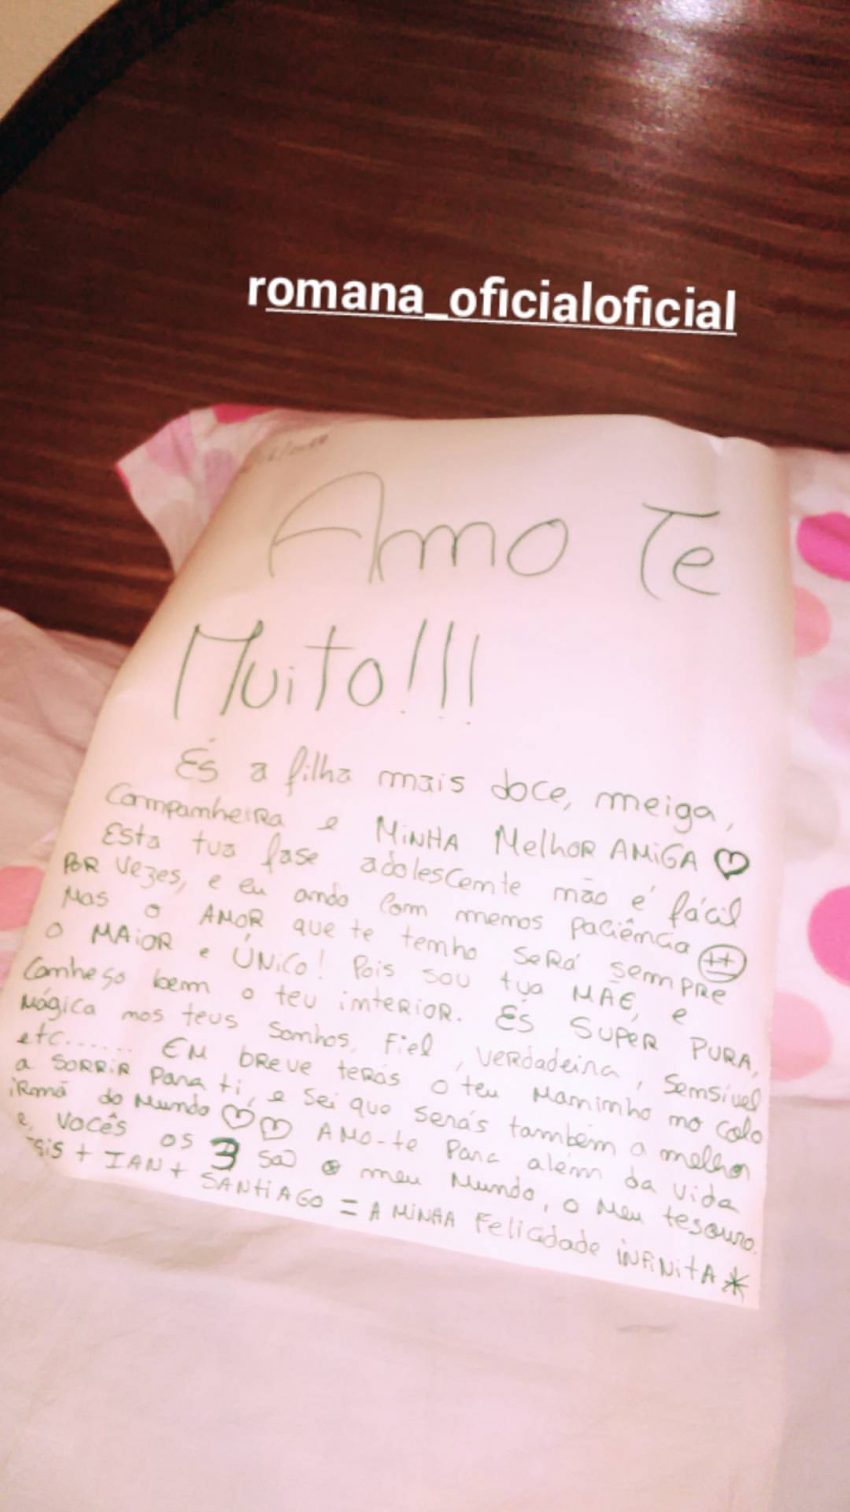 romana_oficialoficial
Amo Te
Muito!!!
És a filha mais doce, meiga,
Companheira e MiNHA MelhoR AMiGA
Esta tua fase adolescente não é fácil
POR vezes, e eu ando com menos paciência
Mas o AMOR que te tenho seRá semPRE
o MAiOR e ÚNiCo! Pois sou tua MÃE, e
Conheço bem o teu inteRioR. ÉS SUPER PURA,
Mágica nos teus Sonhos, Fiel, VERdAdeiRA, Sensível
etc...... EM bReve teRás o teu Maninho no Colo
a SORRiR PaRA ti, e sei que seRás também a melhoR
iRmã do Mundo AMO-te PaRa além da Vida
e, Vocês os 3 são o meu Mundo, o Meu tesouRo.
+ IAN + SANtiAGO = A MiNHA Felicidade iNFiNitA *